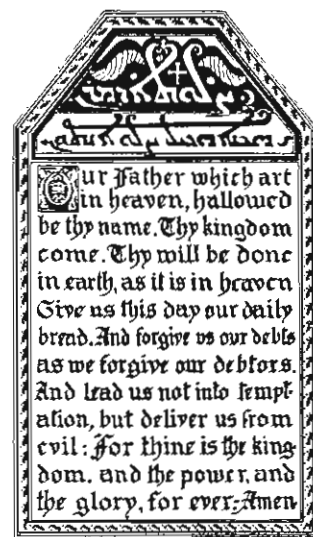 Our Father which art
in heaven, hallowed
be thy name. Thy kingdom
come. Thy will be done
in earth, as it is in heaven
Give us this day our daily
bread. And forgive us our debts
as we forgive our debtors.
And lead us not into tempt-
ation, but deliver us from
evil: For thine is the king-
dom. and the power, and
the glory, for ever: Amen